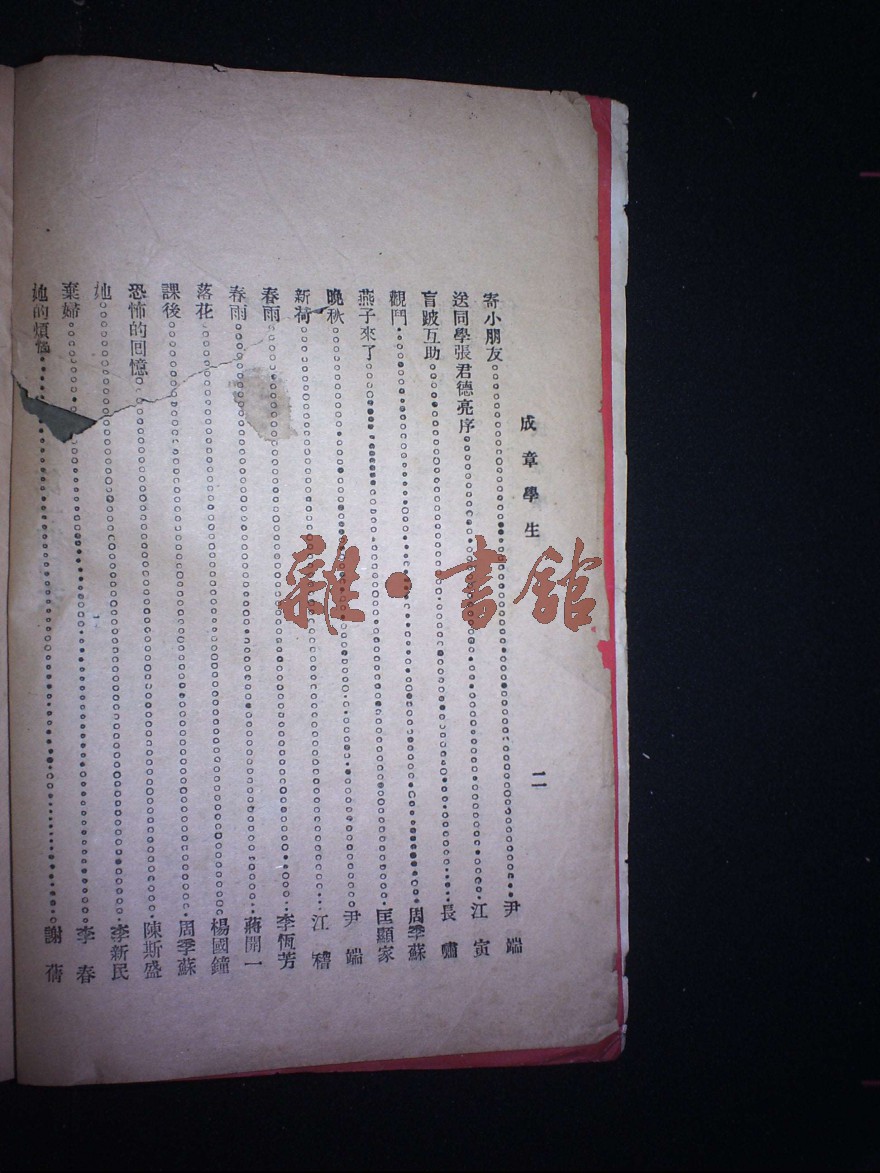 成章學生
二
寄小朋友 尹端
送同學張君德亮序 江寅
盲跛互助 長嘯
觀鬥 周季蘇
燕子來了 匡顯家
晚秋 尹端
新荷 江穭
春雨 李恆芳
春雨 蔣開一
落花 楊國鐘
課後 周季蘇
恐怖的回憶 陳斯盛
她 李新民
棄婦 李春
她的煩惱 謝蒨
雜·書館